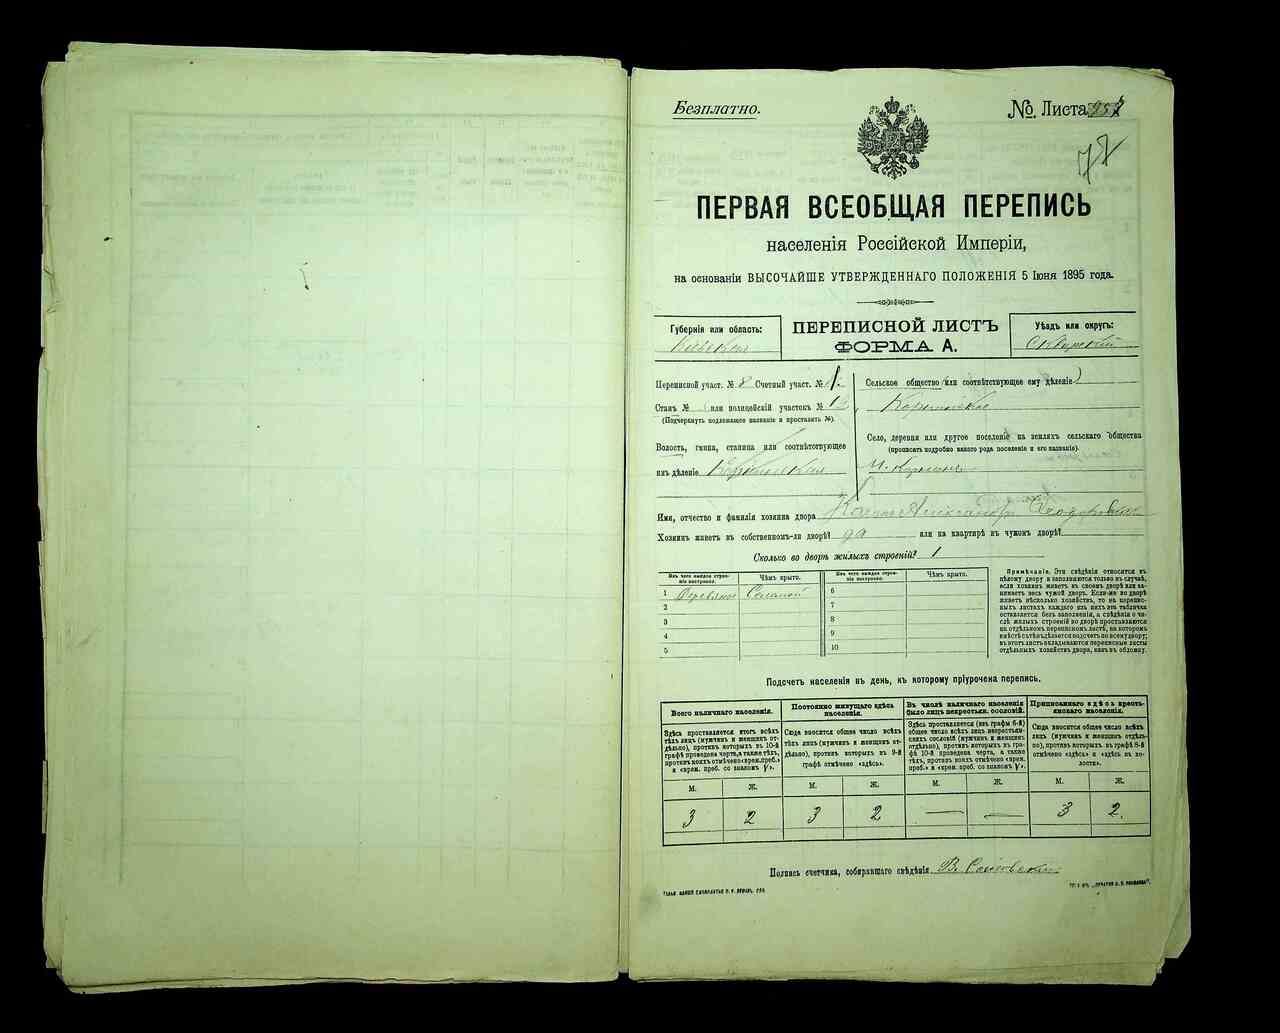 Безплатно.
№ Листа
77
ПЕРВАЯ ВСЕОБЩАЯ ПЕРЕПИСЬ
населенія Россійской Имперіи,
на основаніи ВЫСОЧАЙШЕ УТВЕРЖДЕННАГО ПОЛОЖЕНІЯ 5 Іюня 1895 года.
Губернія или область:
Кіевская
ПЕРЕПИСНОЙ ЛИСТЪ
ФОРМА А.
Уѣздъ или округъ:
Сквирскій
Переписной участ. № 8 Счетный участ. № 1.
Станъ № или полицейскій участокъ № 1
(Подчеркнуть подлежащее названіе и проставить №).
Волость, гмина, станица или соотвѣтствующее
имъ дѣленіе
Сельское общество (или соотвѣтствующее ему дѣленіе)
Село, деревня или другое поселеніе на земляхъ сельскаго общества
(прописать подробно какого рода поселеніе и его названіе).
Имя, отчество и фамилія хозяина двора Александръ
Хозяинъ живетъ въ собственномъ-ли дворѣ? да или на квартирѣ въ чужомъ дворѣ?
Сколько во дворѣ жилыхъ строеній? 1
Изъ чего каждое строеніе построено. Чѣмъ крыто. Изъ чего каждое строеніе построено. Чѣмъ крыто.
1 Деревянное Соломой 6
2 7
3 8
4 9
5 10
Примѣчаніе. Эти свѣдѣнія относятся къ
цѣлому двору и заполняются только въ случаѣ,
если хозяинъ живетъ въ своемъ дворѣ или занимаетъ
весь чужой дворъ. Если-же во дворѣ
живетъ нѣсколько хозяйствъ, то на переписныхъ
листахъ каждаго изъ нихъ эта табличка
оставляется безъ заполненія, а свѣдѣнія о числѣ
жилыхъ строеній во дворѣ проставляются
на отдѣльномъ переписномъ листѣ, на которомъ
вмѣстѣ съ тѣмъ дѣлается подсчетъ по всему двору;
въ этотъ листъ вкладываются переписные листы
отдѣльныхъ хозяйствъ двора, какъ въ обложку.
Подсчетъ населенія въ день, къ которому пріурочена перепись.
Всего наличнаго населенія.
Здѣсь проставляется итогъ всѣхъ
тѣхъ лицъ (мужчинъ и женщинъ отдѣльно),
противъ которыхъ въ 10-й
графѣ проведена черта, а также тѣхъ,
противъ коихъ отмѣчено «врем. преб.»
и «врем. преб. со знакомъ V».
М. Ж.
3 2
Постоянно живущаго здѣсь
населенія.
Сюда вносится общее число всѣхъ
тѣхъ лицъ (мужчинъ и женщинъ отдѣльно),
противъ которыхъ въ 9-й
графѣ отмѣчено «здѣсь».
М. Ж.
3 2
Въ числѣ наличнаго населенія
было лицъ некрестьян. сословій.
Здѣсь проставляется (изъ графы 6-й)
общее число всѣхъ лицъ некрестьянскихъ
сословій (мужчинъ и женщинъ
отдѣльно), противъ которыхъ въ графѣ
10-й проведена черта, а также
тѣхъ, противъ коихъ отмѣчено «врем.
преб.» и «врем. преб. со знакомъ V».
М. Ж.
— —
Приписаннаго здѣсь крестьянскаго
населенія.
Сюда вносится общее число всѣхъ
лицъ (мужчинъ и женщинъ отдѣльно),
противъ которыхъ въ графѣ 8-й
отмѣчено «здѣсь» и «здѣсь въ волости».
М. Ж.
3 2.
Подпись счетчика, собиравшаго свѣдѣнія В.